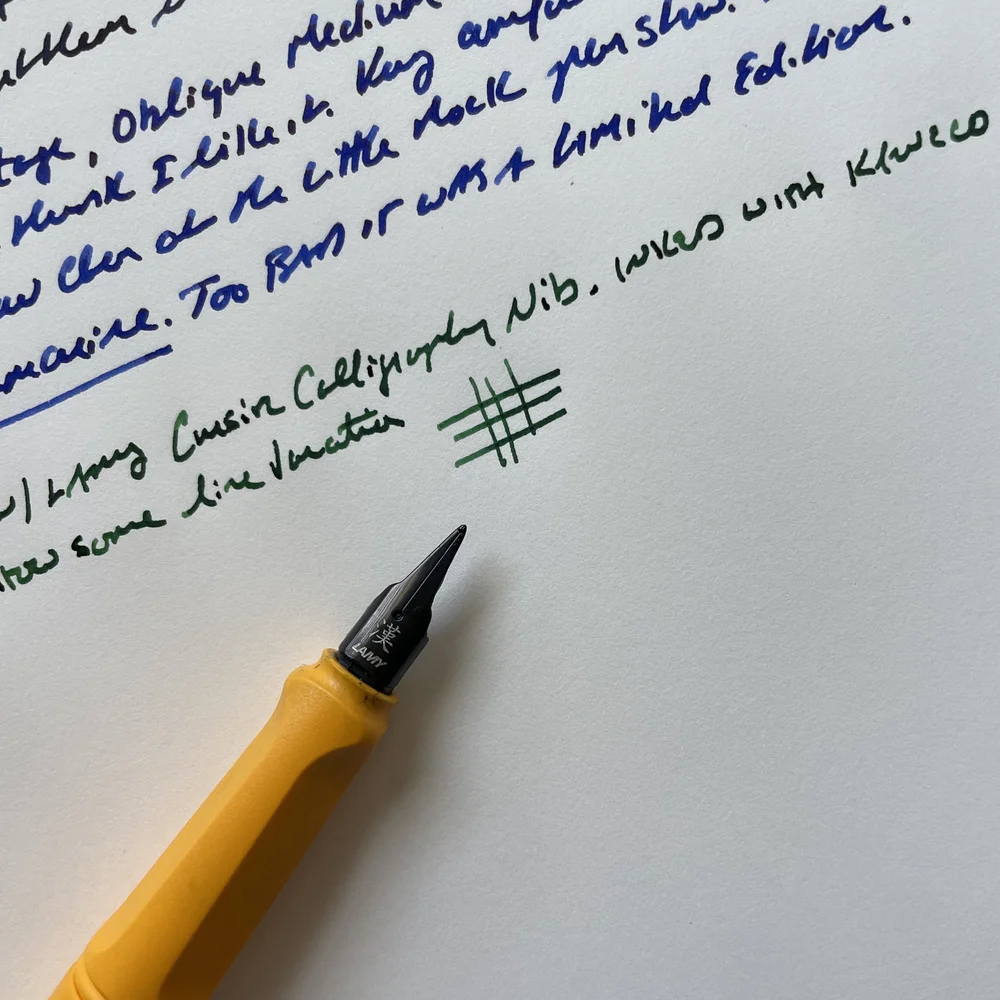 Oblique Medium
think I like it. Very comfo
at the Little Rock pen show.
marine. Too BAD IT WAS A Limited Edition.
w/ LAMY Cursive Calligraphy Nib. INKED WITH KAWECO
some line variation
漢
LAMY